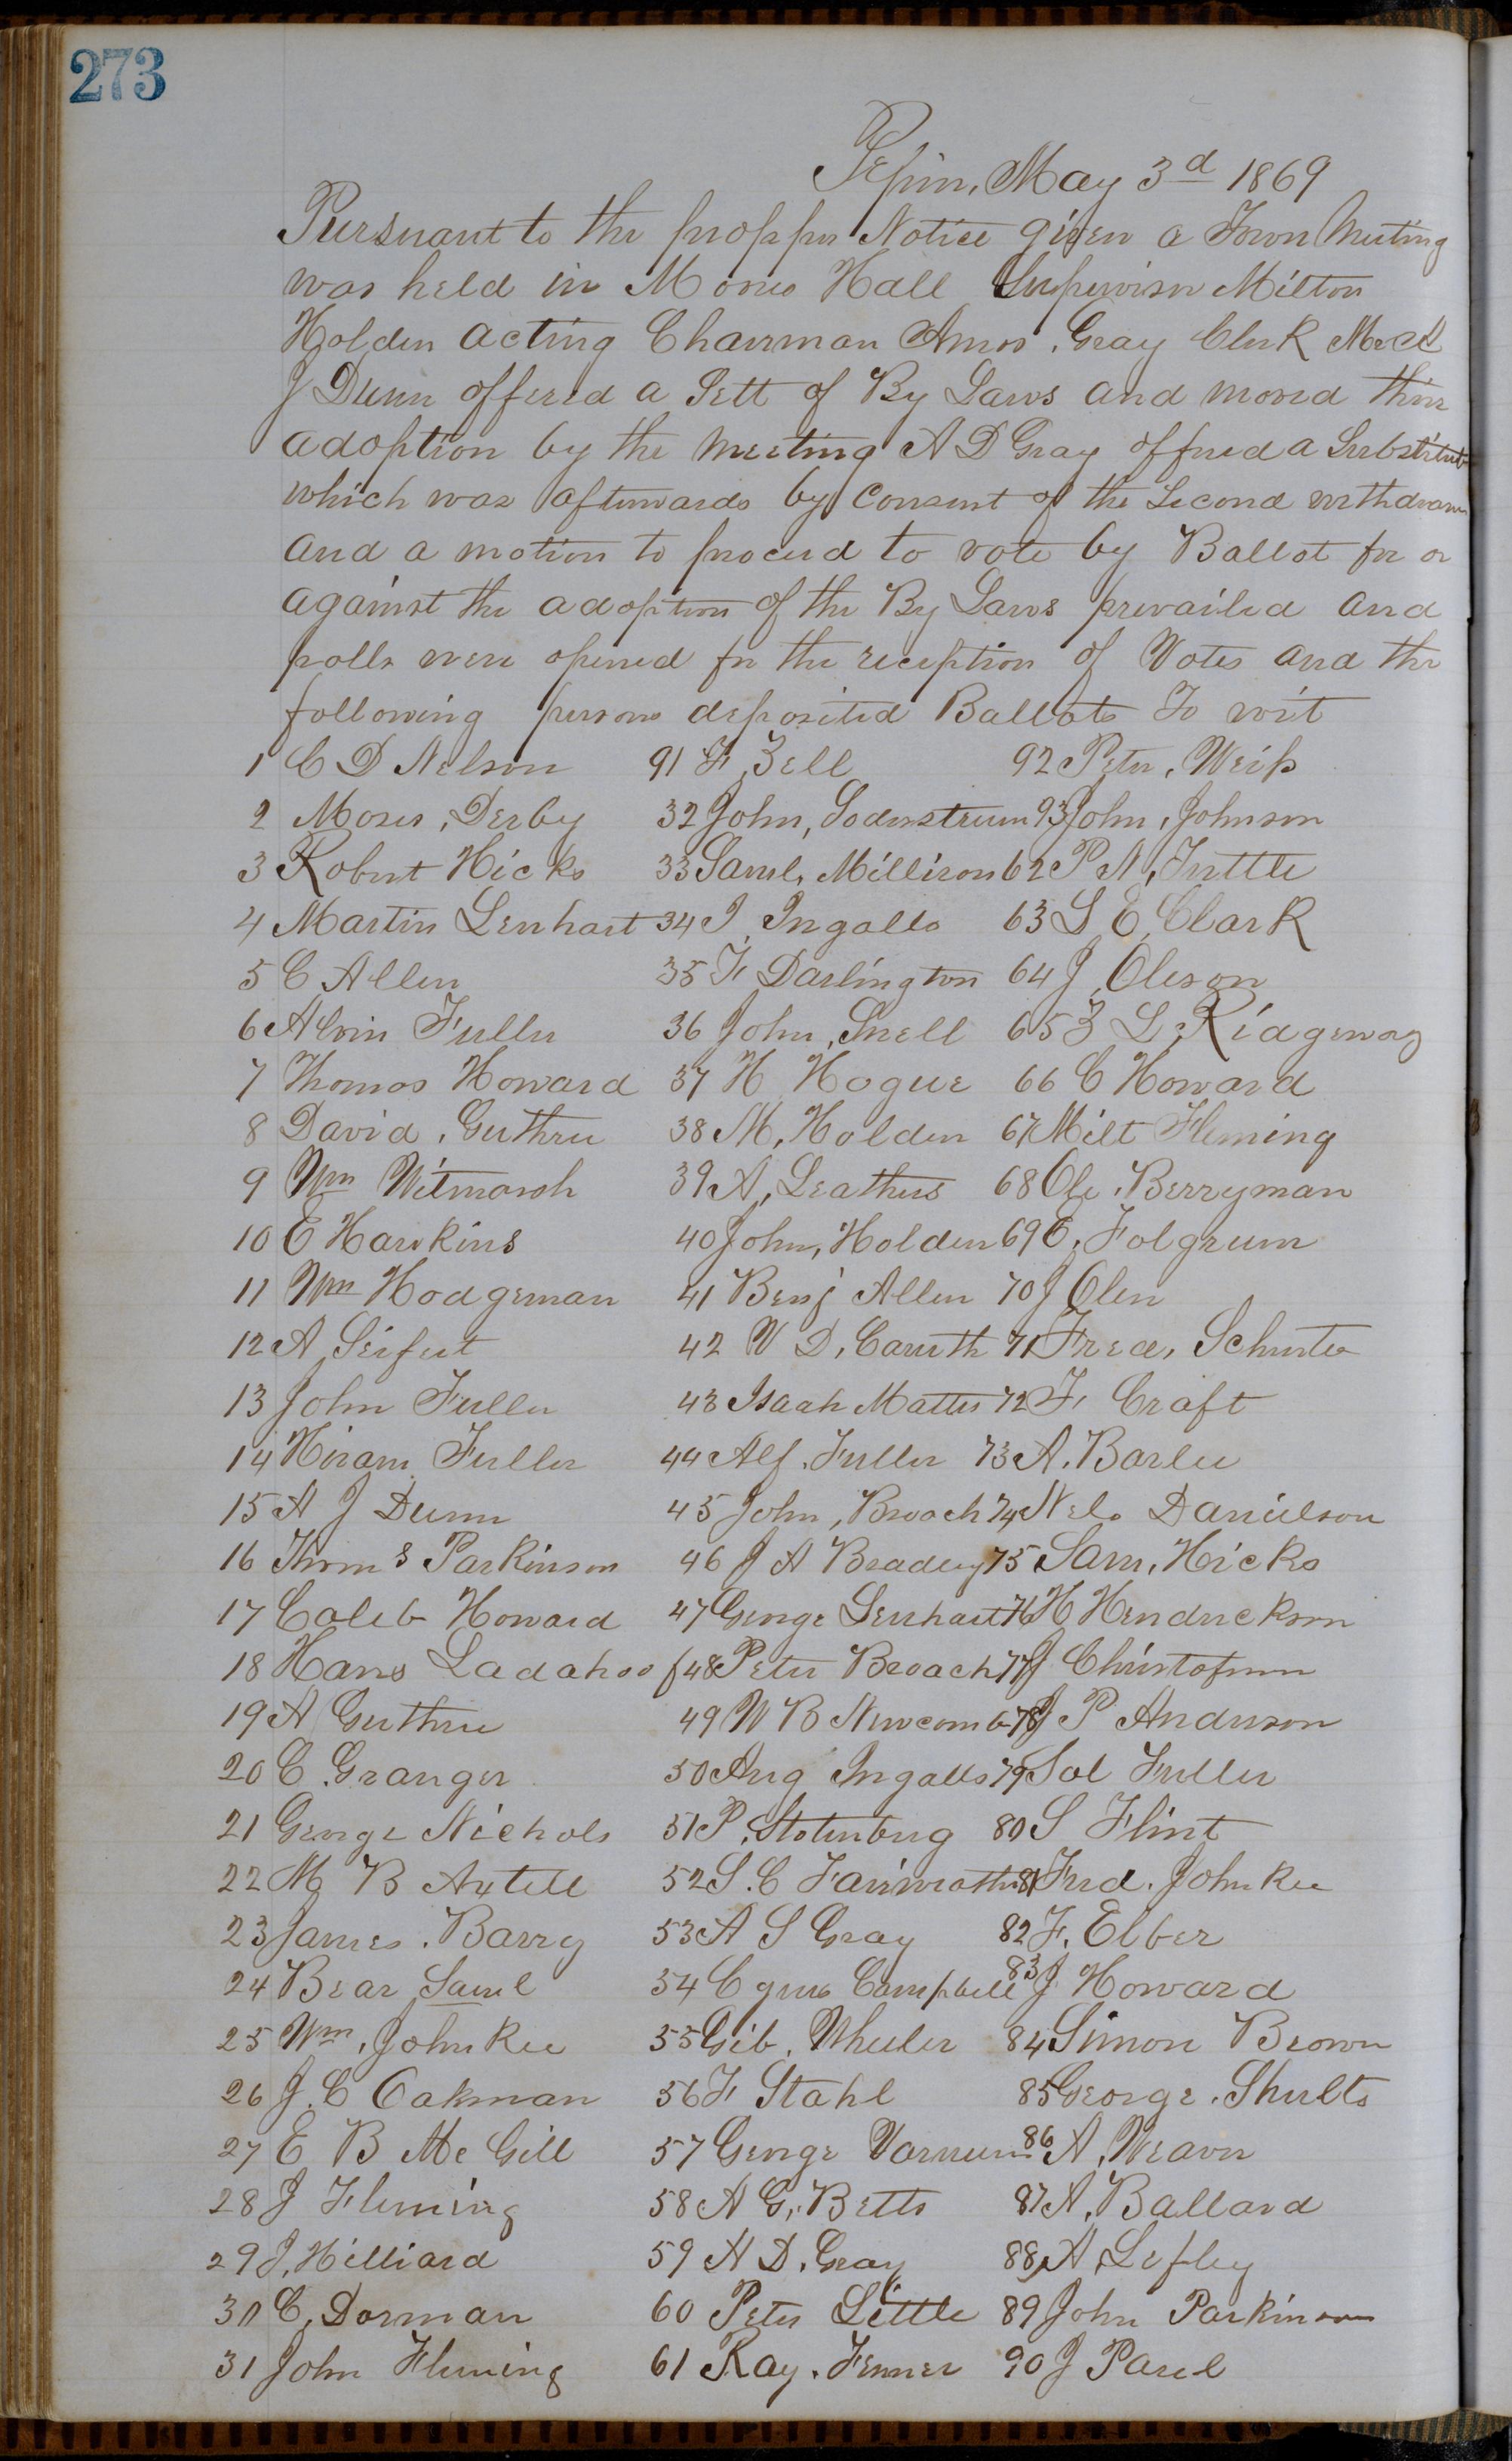 273
Pepin, May 3d 1869
Pursuant to the propper Notice given a Town Meeting
was held in Mones Hall Supervisor Milton
Holden acting Chairman Amos. Gray Clerk
J Dunn offered a Sett of By Laws and moved thire
adoption by the meeting A D Gray offred a Substitute
which was afterwards by Consent of the Second withdrawn
and a motion to proceed to vote by Ballot for or
against the adoption of the By Laws prevailed and
polls were opened for the reception of Votes and the
following persons deposited Ballots To wit
1 C D Nelson
2 Moses, Derby
3 Robert Hicks
4 Martin Lenhart
5 C Allen
6 Alvin Fuller
7 Thomas Howard
8 David, Guthrie
9 Wm Witmarsh
10 E Hawkins
11 Wm Hodgeman
12 A Seifert
13 John Fuller
14 Hiram Fuller
15 A J Dunn
16 Thoms Parkinson
17 Caleb Howard
18 Hans Ladahoof
19 A Guthrie
20 C. Granger
21 George Nichols
22 M B Axtell
23 James. Barry
24 Bear Saml
25 Wm, Johnkee
26 J. C Oakman
27 E B Mc Gill
28 J Fleming
29 J. Hilliard
30 C. Dorman
31 John Fleming
91 F, Zell
32 John, Sodustrum
33 Saml, Millison
34 I Ingalls
35 F Darlington
36 John, Snell
37 H Hogue
38 M, Holden
39 A, Leathers
40 John, Holden
41 Benj Allen
42 V D, Caruth
43 Isaah Matter
44 Alf. Fuller
45 John, Broach
46 J A Bradley
47 George Lenhart
48 Peter Broach
49 W B Newcomb
50 Aug Ingalls
51 P, Stotenburg
52 S. C Fairweather
53 A S Gray
54 Cyrus Campbell
55 Gib, Wheeler
56 F Stahl
57 George Varnum
58 A G, Betts
59 A D, Gray
60 Peter Little
61 Ray. Fenner
92 Peter, Weiss
93 John, Johnson
62 P A, Tuttle
63 S E, Clark
64 J Oleson
65 Z L, Ridgeway
66 C Howard
67 Milt Fleming
68 Ole, Berryman
69 E, Folgrum
70 J Olen
71 Fred, Schruter
72 F, Craft
73 A. Barlee
74 Nels Danielson
75 Sam, Hicks
76 H Hendrickson
77 J Christofurson
78 J P Anderson
79 Sol Fuller
80 S Flint
81 Fred. Johnkee
82 F. Elber
83 J Howard
84 Simon Brown
85 George. Shults
86 A, Weaver
87 A, Ballard
88 A, Lefley
89 John Parkinson
90 J Parel